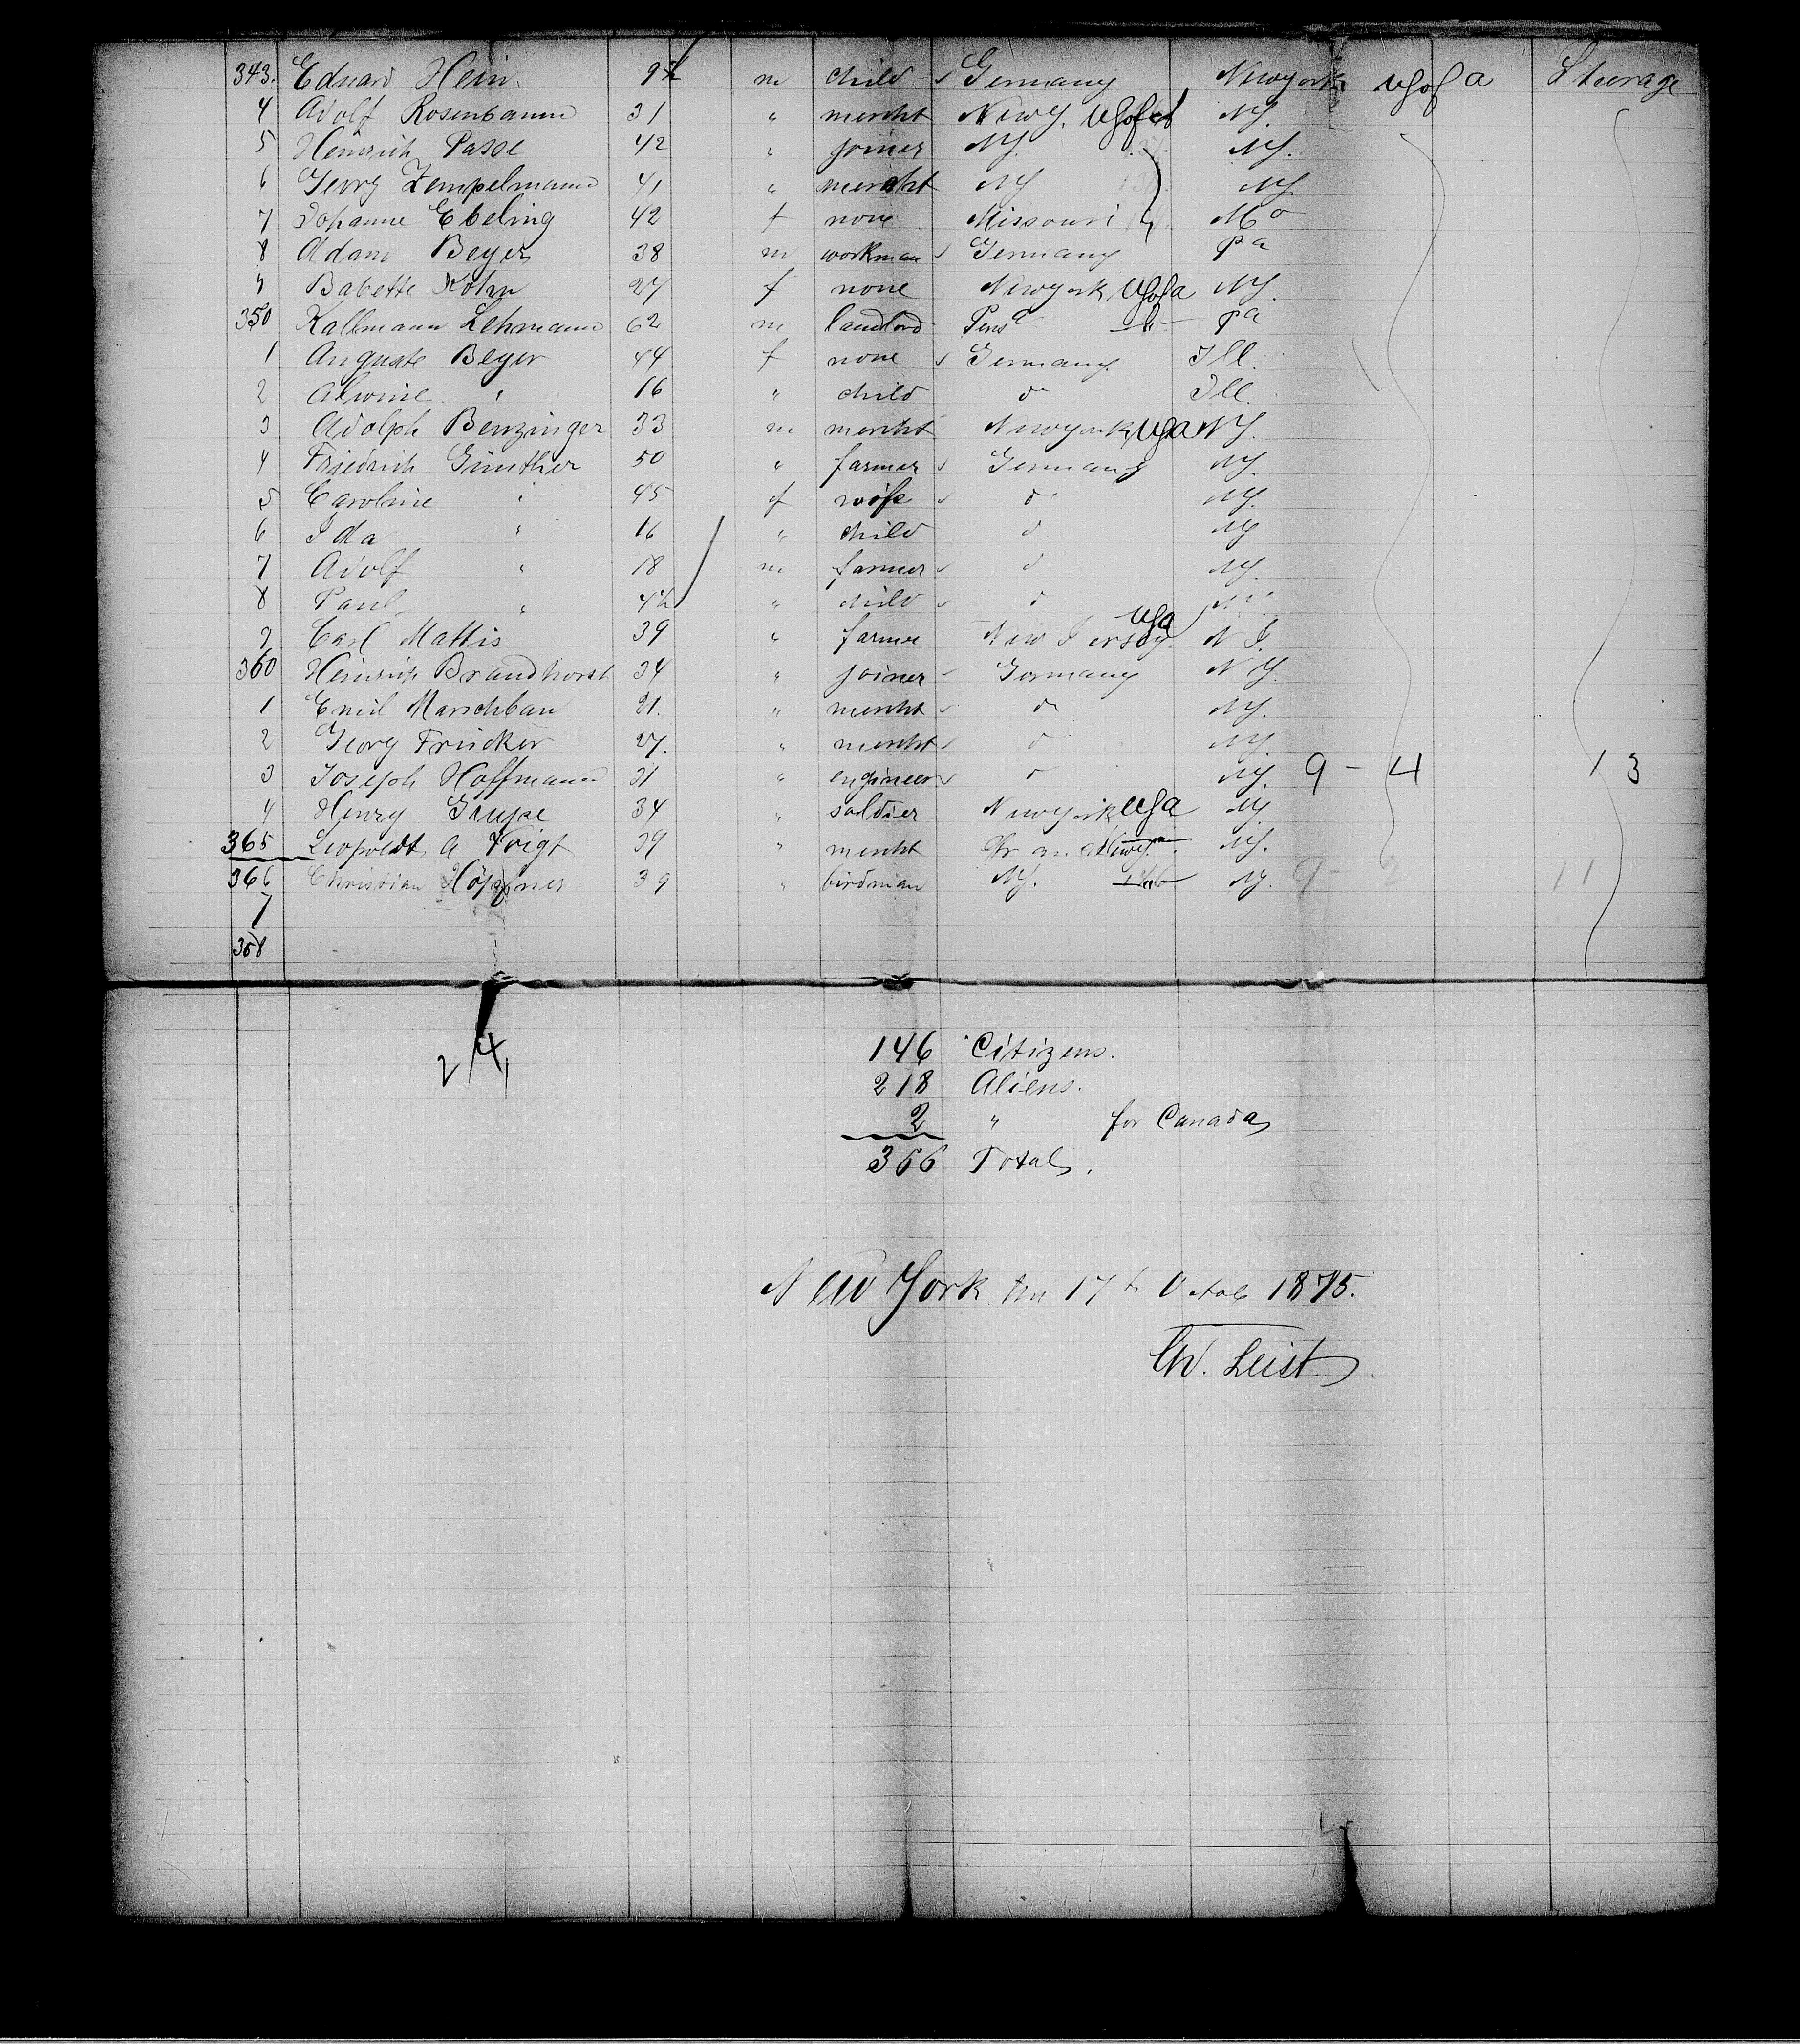 343. Eduard Hein 9 m child Germany Newyork U S of a Steerage
4 Adolf Rosenbaum 31 " mercht New Y. U S of a N Y.
5 Heinrich Passe 42 " joiner N Y. N Y.
6 Georg Zempelmann 41 " mercht N Y N Y.
7 Johanne Ebeling 42 f none Missouri Mo
8 Adam Beyer 38 m workman Germany Pa
9 Babette Kohn 27 f none Newyork U S of a N Y.
350 Kallmann Lehmann 62 m landlord Pensa Pa
1 Auguste Beyer 44 f none Germany Ill.
2 Alwine " 16 " child do Ill.
3 Adolph Benzinger 33 m mercht Newyork U S a N Y.
4 Friedrich Günther 50 " farmer Germany N Y.
5 Caroline " 45 f wife do N Y.
6 Ida " 16 " child do N Y
7 Adolf " 18 m farmer do N Y.
8 Paul " " child do N Y.
9 Carl Mattis 39 " farmer New Jersey U S a N J.
360 Heinrich Brandhorst 34 " joiner Germany N Y.
1 Emil Marschbau 21. " mercht do N Y.
2 Georg Fricker 27. " mercht do N Y.
3 Joseph Hoffmann 31 " engineer do N Y. 9 - 4 13
4 Henry Grupe 34 " soldier Newyork U S a N Y
365 Leopoldt A Voigt 39 " mercht N Y.
366 Christian Höpfner 39 " birdman N Y. N Y. 9 - 2 11
7
368
2/4
146 Citizens.
218 Aliens.
2 " for Canada
366 Total.
New York the 17th Octob 1875.
Ch. Leist